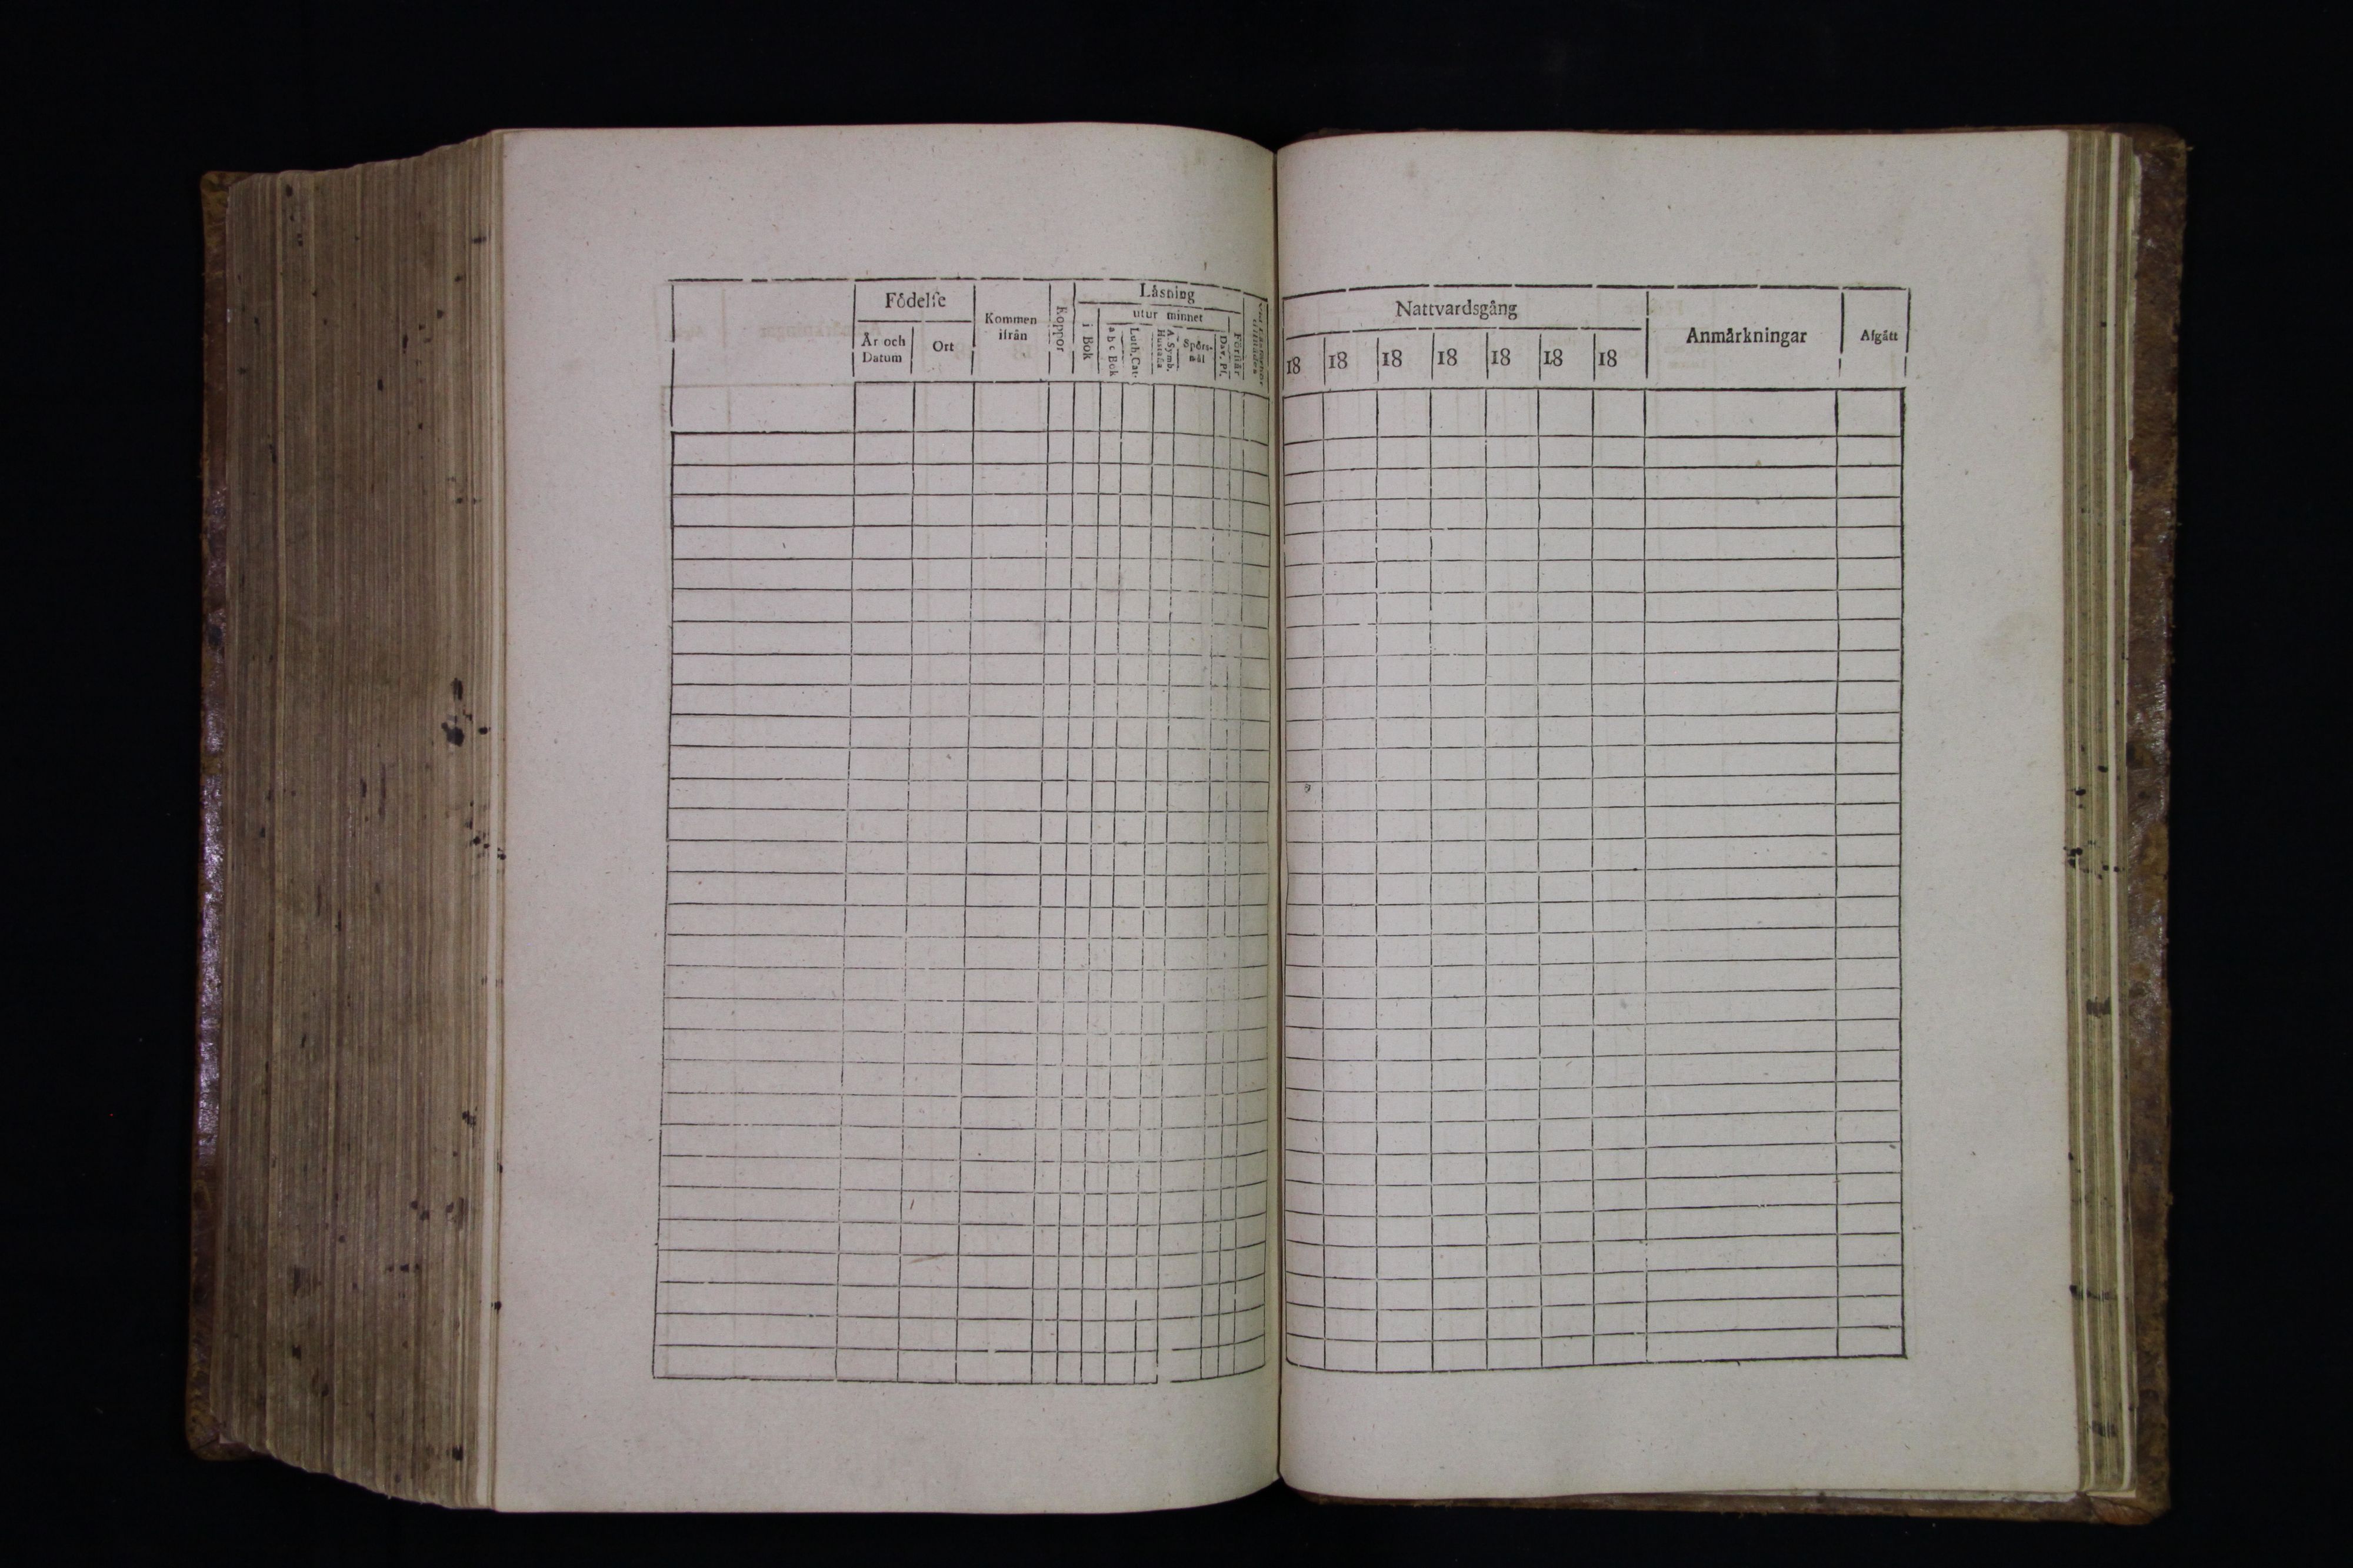 Födelse
År och
Datum
Ort
Kommen
ifrån
Koppor
Låsning
i Bok
utur minnet
a b c Bok
Luth. Cat.
A. Symb.
Hustafla
Spörs-
mål
Dav. Ps.
Förstår
Nattvardsgång
18 18 18 18 18 18 18
Anmårkningar
Afgått